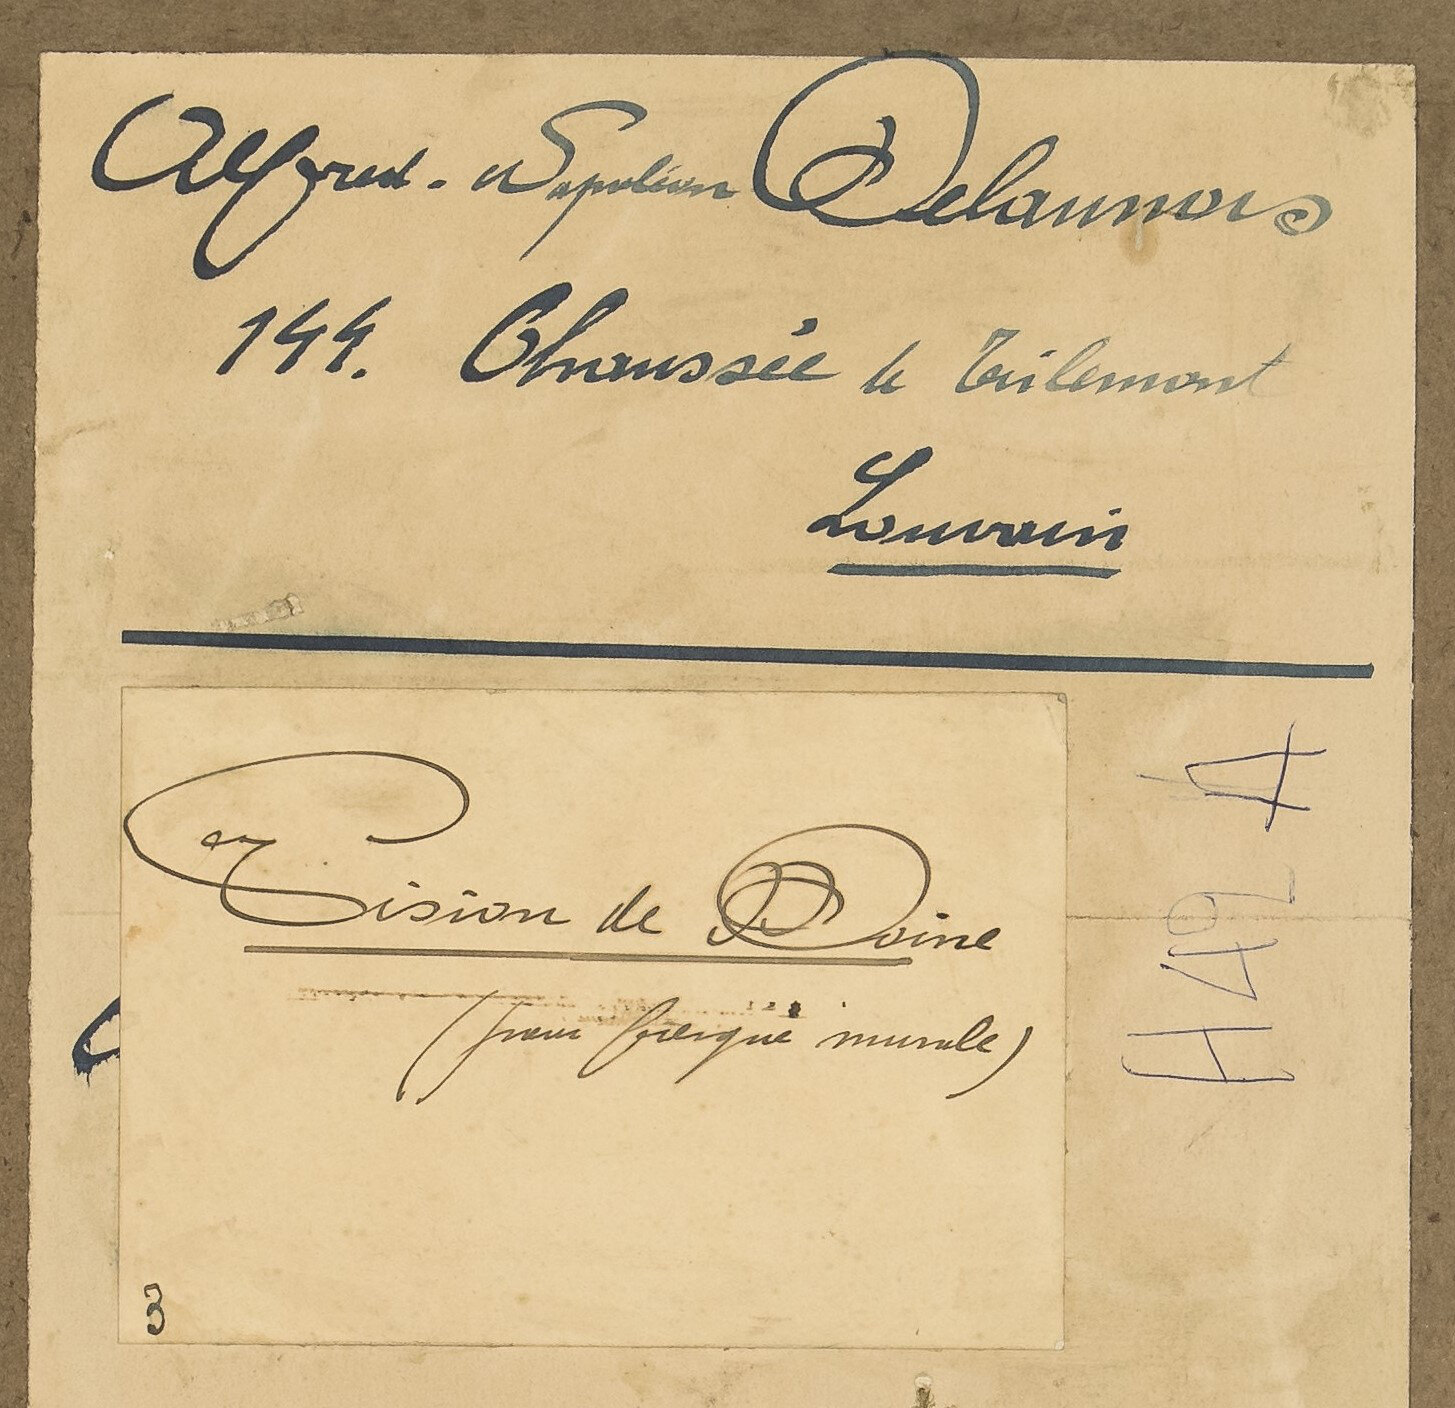 Alfred-Napoléon Delaunois
144. Chaussée de Tirlemont
Louvain
Vision de Moine
(pour fresque murale)
3
H 49 A